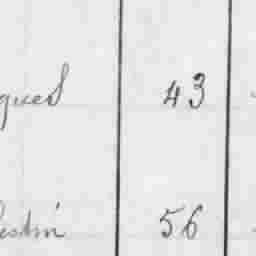 ques 43
estin 56